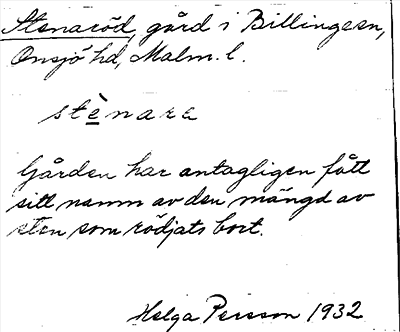 Stenaröd, gård i Billingesn,
Onsjö hd, Malm. l.
stènara
Gården har antagligen fått
sitt namn av den mängd av
sten som rödjats bort.
Helga Persson 1932